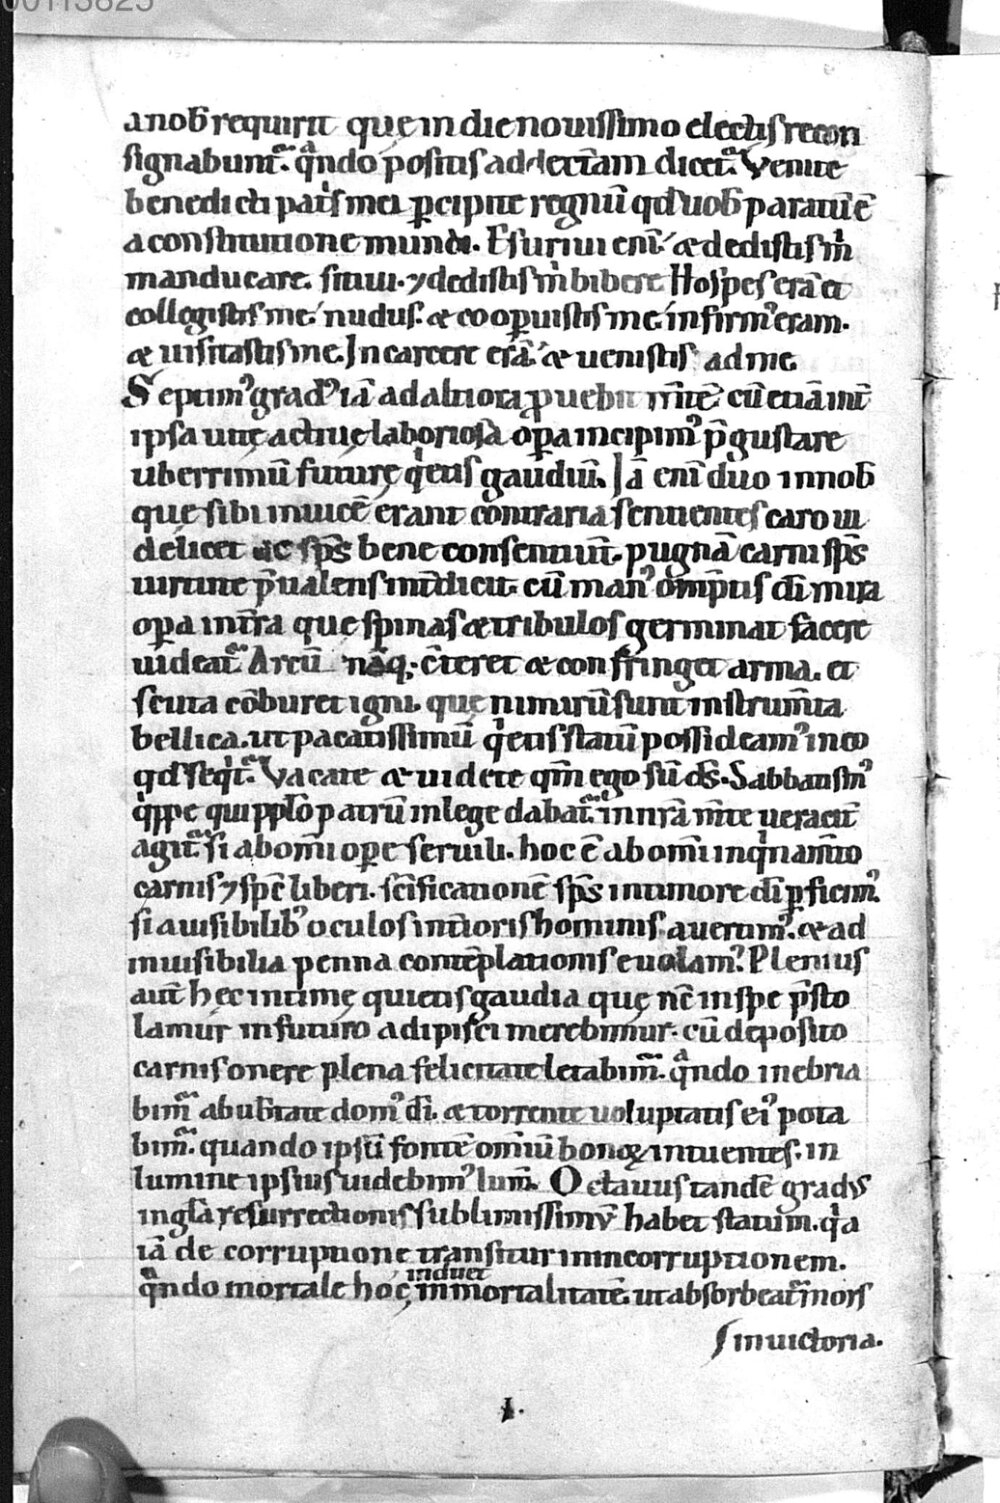 00113823
a nob̄ requirit que̜ in die nouissimo electis recon
signabunt᷑. qͣndo positus ad dext̄am dicet᷑. Venite
benedicti patͥs mei ꝑcipite regnū qd̄ uob̄ paratū ē
a constitutione mundi. Esuriui eni᷑ ⁊ dedistis m̄
manducare. sitiui. ⁊ dedistis m̄ bibere Hospes erā et
collegistis me. nudus. & cooꝑuistis me. infirmꝰ eram.
& uisitastis me. In carcere erā. & uenistis ad me.
Septimꝰ gradꝰ iā ad altiora ꝓuehit m̄te᷑ cū etiā int̄
ipsa uite̜ actiue̜ laboriosa oꝑa incipimꝰ p̄gustare
uberrimū future̜ qͥetis gaudiū. Iā enī duo in nob̄
que̜ sibi inuicē erant contraria sentientes caro ui
delicet ac sp̄s bene consentiūt. pugnā carnis sp̄s
uirtute p̄ualens int̄dicit. cū manꝰ om̄ptis dī mira
oꝑa int̄ra que̜ spinas & tribulos germinat facere
uideat᷑. Arcū naq; c̄teret & confringet arma. et
scuta cōburet igni. que̜ nimirū sunt instrum̄ta
bellica. ut pacatissimū qͥetis statū possideamꝰ in eo
qd̄ seqͥt᷑. Vacate & uidete qm̄ ego sū dꝰs. Sabbatismꝰ
qͥppe qui pp̄lo patrū in lege dabat᷑. in nr̄a m̄te ueracit̄
agit᷑. si ab om̄i oꝑe seruili. hoc ē ab om̄i inqͥnam̄to
carnis ⁊ sp̄c liberi. scīficationē sp̄s in timore dī ꝑficimꝰ.
si a uisibilibꝰ oculos int̄ioris hominis auertimꝰ. & ad
inuisibilia penna contēplationis euolamꝰ. Plenius
aut̄ hec intime̜ quietis gaudia que̜ nc̄ in spe p̄sto
lamur in futuro adipisci merebimur. cū deposito
carnis onere plena felicitate letabim᷑. qͣndo inebria
bim᷑ ab ub̄tate domꝰ dī. & torrente uoluptatis eiꝰ pota
bim᷑. quando ipsū fontē om̄iū bonoꝝ intuentes. in
lumine ipsius uidebimꝰ lum̄. Octauus tandē gradꝰ
in gl̄a resurrectionis sublimissimū habet statum. qͥa
iā de corruptione transitur in incorruptionem.
induet
qͣndo mortale hoc inmortalitatē. ut absorbeat᷑ mors
in uictoria.
I.